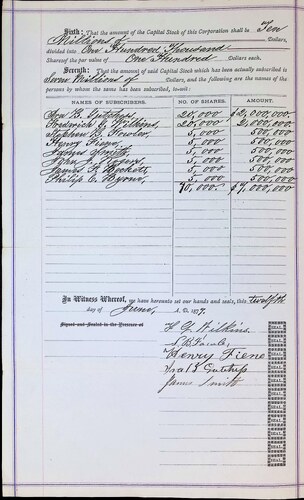 Sixth: That the amount of the Capital Stock of this Corporation shall is Ten
Millions of Dollars,
divided into One Hundred Thousand
Shares of the par value of One Hundred Dollars each.
Seventh: That the amount of said Capital Stock which has been actually subscribed is
Seven Millions of Dollars, and the following are the names of
the persons by whom the same has been subscribed, to-wit:
NAMES OF SUBSCRIBERS. NO. OF SHARES. AMOUNT.
Ira B. 20,000 $2,000,000
Wilkins, 20,000 2,000,000
Stephen B. 5,000 500,000
Henry Fiene, 5,000 500,000
James Smith, 5,000 500,000
John 5,000 500,000
James 5,000 500,000
Philip C. 5,000 500,000
70,000 $7,000,000
In Witness Whereof, we have hereunto set our hands and seals, this twelfth
day of June, A. D. 1879.
Signed and Sealed in the Presence of
Wilkins. SEAL
S. B. SEAL
Henry Fiene SEAL
Ira B. SEAL
James Smith SEAL
SEAL
SEAL
SEAL
SEAL
SEAL